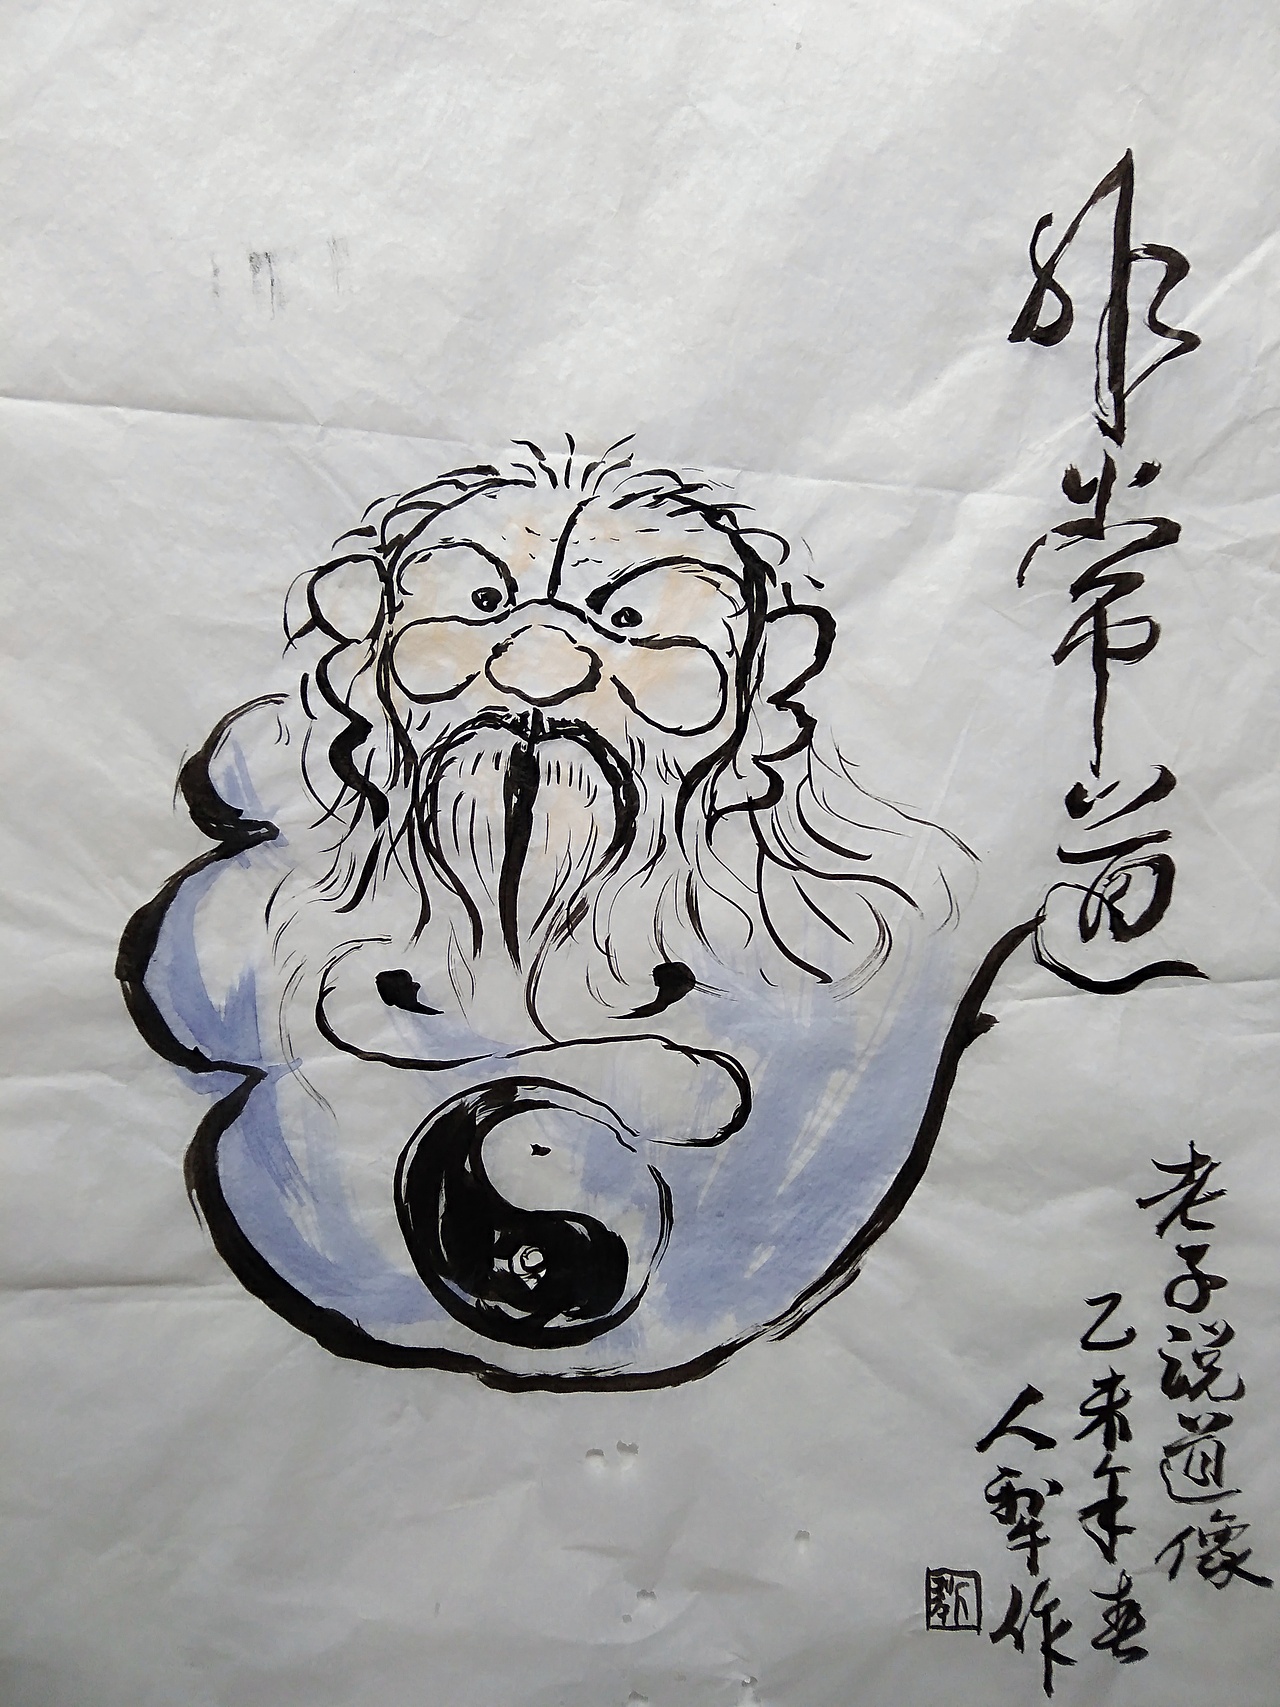 非常道
老子说道像
乙未年春
人犁作